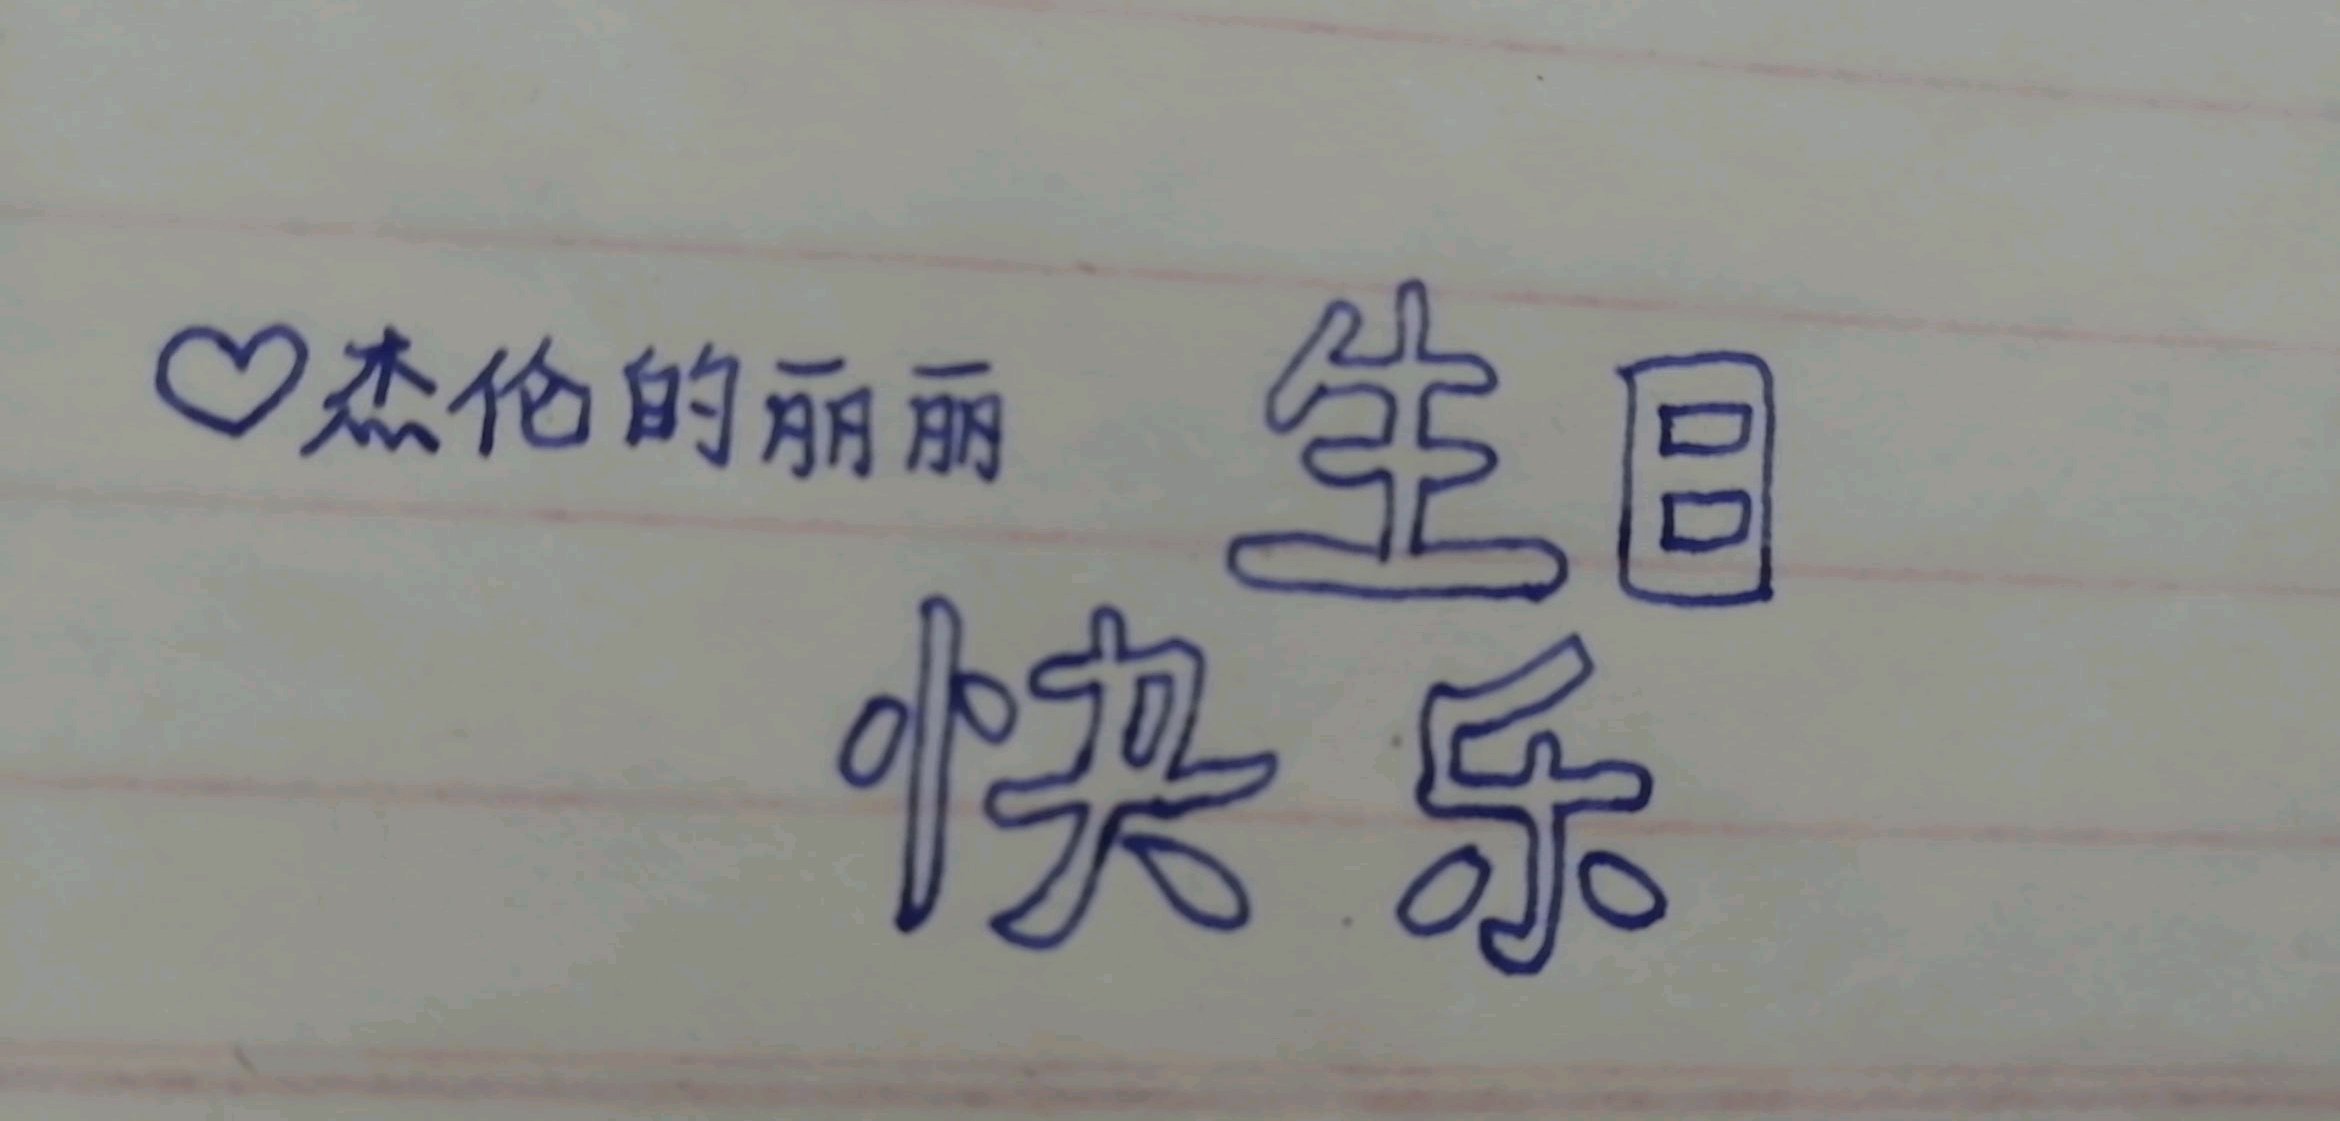 ♡杰伦的丽丽 生日
快乐